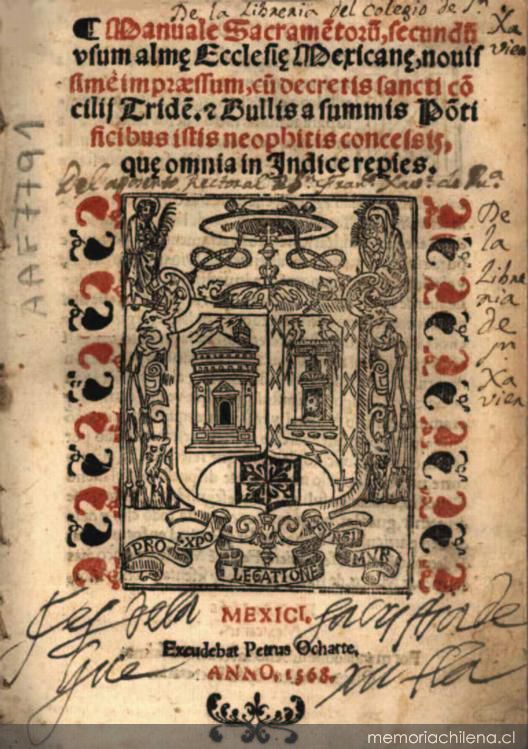 De la Libreria del Colegio de Sn.
Xa
vier
¶ Manuale Sacramẽtorũ, secundũ
vsum almę Ecclesię Mexicanę, nouis
simẽ impræssum, cũ decretis sancti cõ
cilij Tridẽ. ⁊ Bullis a summis Põti
ficibus istis neophitis conceisis,
quę omnia in Indice repies.
De
la
Libre
ria
de
Sn.
Xa
vier
AAF7791
PRO EXPO LEGATIONE MVR
MEXICI,
Excudebat Petrus Ocharte,
ANNO, 1568.
memoriachilena.cl